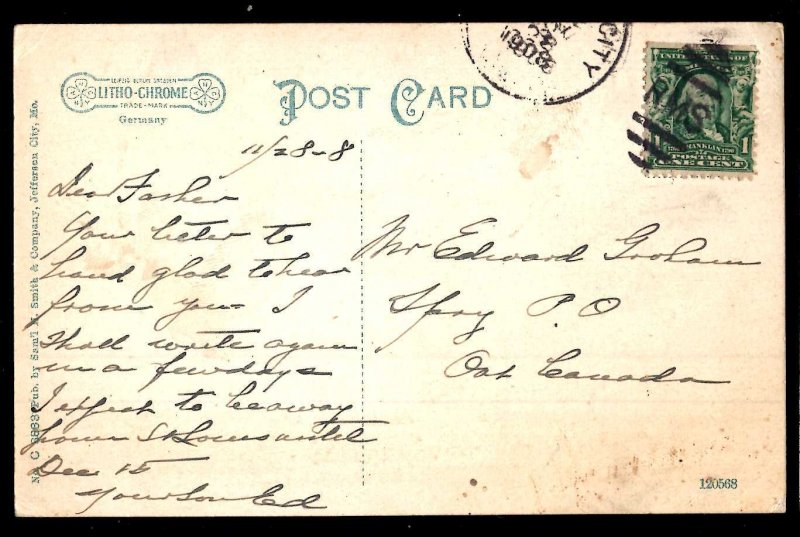 LEIPZIG BERLIN DRESDEN
LITHO-CHROME
TRADE-MARK
Germany
POST CARD
CITY
1908
UNITED STATES OF
FRANKLIN
1
POSTAGE
ONE CENT
11/28-8
Dear Father
Your letter to
hand glad to hear
from you I
shall write again
in a few days
I expect to be away
from St Louis until
Dec 15
Your Son Ed
Mr Edward Graham
Spry P.O
Ont Canada
N. C 6868 Pub. by Sam'l H. Smith & Company, Jefferson City, Mo.
120568